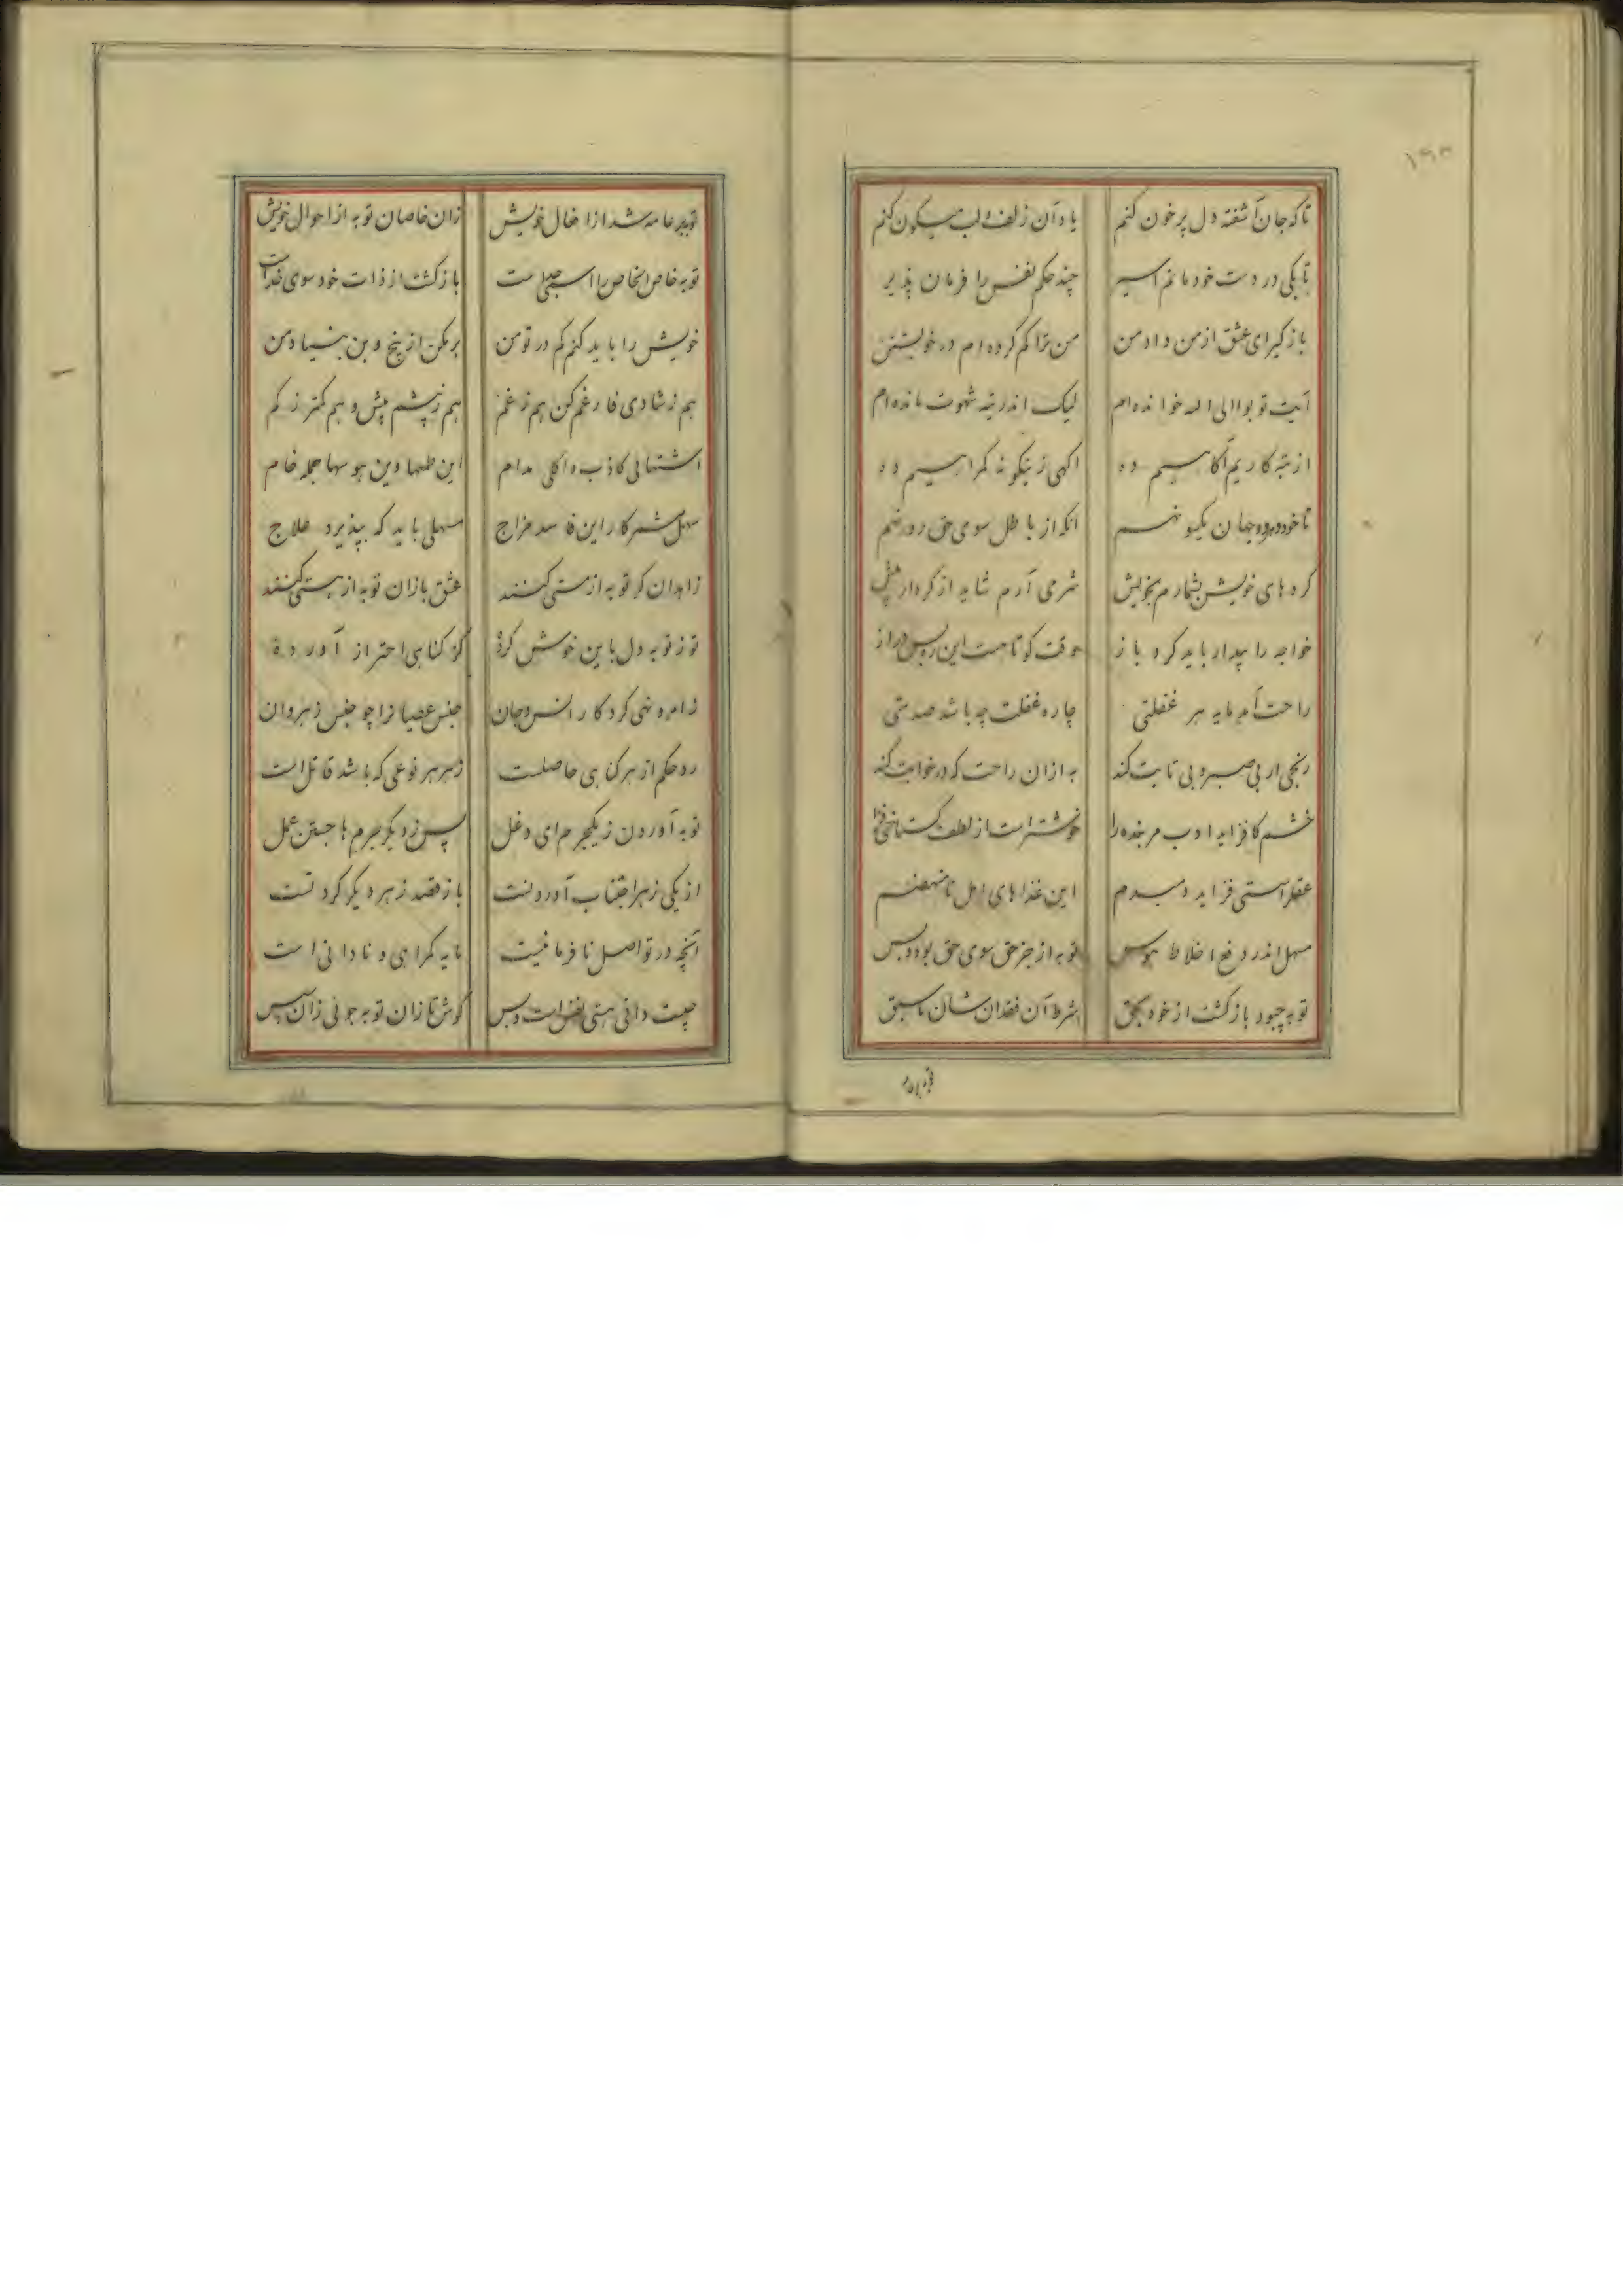 ۱۹۳
تا که جان آشفته دل پر خون کنم یاد آن زلف و لب میگون کنم
تا بکی در دست خود مانم اسیر چند حکم نفس را فرمان پذیر
باز گیر ای عشق از من داد من من ترا گم کرده ام در خویشتن
آیت توبوا الی الله خوانده ام لیک اندر تیه شهوت مانده ام
از تبه کاریم آگاهیم ده آگهی زینگونه گمراهیم ده
تا خود و هر دو جهان یکسو نهم آنکه از باطل سوی حق رو نهم
کرد های خویش بشمارم بخویش شرمی آرم شاید از کردار خویش
خواجه را بیدار باید کرد باز وقت کوتاهست این ره بس دراز
راحت آمد مایه هر غفلتی چاره غفلت چه باشد صدمتی
رنجی ار بی صبر و بی تابت کند به ازان راحت که در خوابت کند
خشم کافزاید ادب مر بنده را خوشتر است از لطف گستاخی فزا
عقل را سستی فزاید دمبدم این غذاهای امل نا منهضم
مسهل اندر دفع اخلاط هوس توبه از جز حق سوی حق بود و بس
توبه چبود بازگشت از خود بحق شرط آن فقدان شان ما سبق
توبه عامه شد از افعال خویش زان خاصان توبه از احوال خویش
توبه خاص الخاص را اسجلی ست بازگشت از ذات خود سوی خداست
خویش را باید کنم گم در تو من بر بکن از بیخ و بن بنیاد من
هم ز شادی فارغم کن هم ز غم هم ز پیشم پیش و هم کمتر ز کم
اشتهائی کاذب و اکلی مدام این طمعها وین هوسها جمله خام
سهل مشمر کار این فاسد مزاج مسهلی باید که بپذیرد علاج
زاهدان گر توبه از مستی کنند عشق بازان توبه از هستی کنند
تو ز توبه دل باین خوش کردۀ کز گناهی احتراز آوردۀ
ز امر و نهی کردگار انس و جان جنس عصیان را چو جنس زهر دان
رد حکم از هر گناهی حاصلست زهر هر نوعی که باشد قاتل است
توبه آوردن ز یکجرم ای دغل پس ز دیگر جرم ها جستن عمل
از یکی زهر اجتناب آوردنت باز قصد زهر دیگر کردنت
آنچه در تو اصل نافرمانیست مایه گمراهی و نادانی است
چیست دانی هستی نفس است و بس گوش تا زان توبه جوئی زان سپس